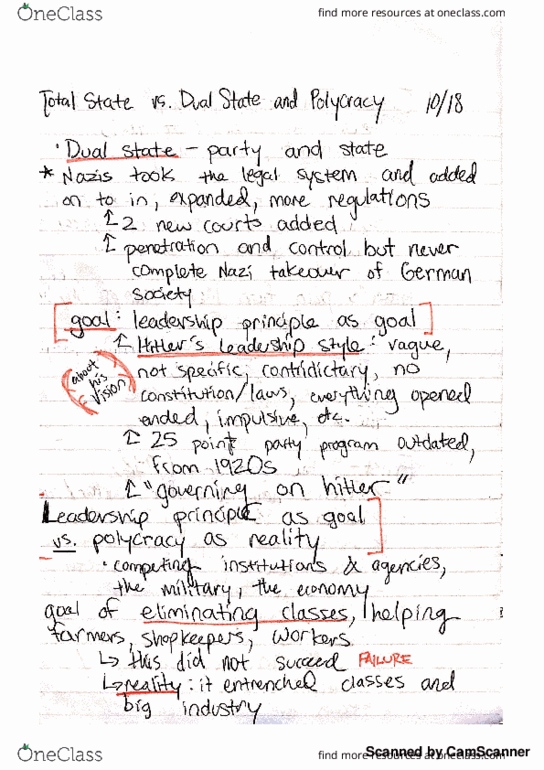 OneClass
find more resources at oneclass.com
Total State vs. Dual State and Polycracy 10/18
· Dual state - party and state
* Nazis took the legal system and added
on to in, expanded, more regulations
↑ 2 new courts added
↑ penetration and control but never
complete Nazi takeover of German
society
[goal: leadership principle as goal]
↑ Hitler's leadership style: vague,
(about his vision)
not specific, contridictary, no
constitution/laws, everything opened
ended, impulsive, etc.
↑ 25 point party program outdated,
from 1920s
↑ "governing on hitler"
Leadership principle as goal
vs. polycracy as reality]
· competing institutions & agencies,
the military, the economy
goal of eliminating classes, helping
farmers, shopkeepers, workers
↳ this did not succeed FAILURE
↳ reality: it entrenched classes and
big industry
OneClass
find more resources at oneclass.com
Scanned by CamScanner